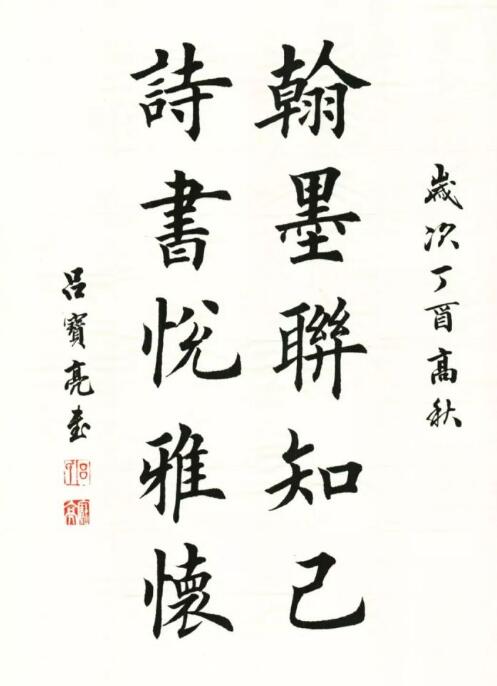 歲次丁酉高秋
翰墨聯知己
詩書悅雅懷
呂寶亮書